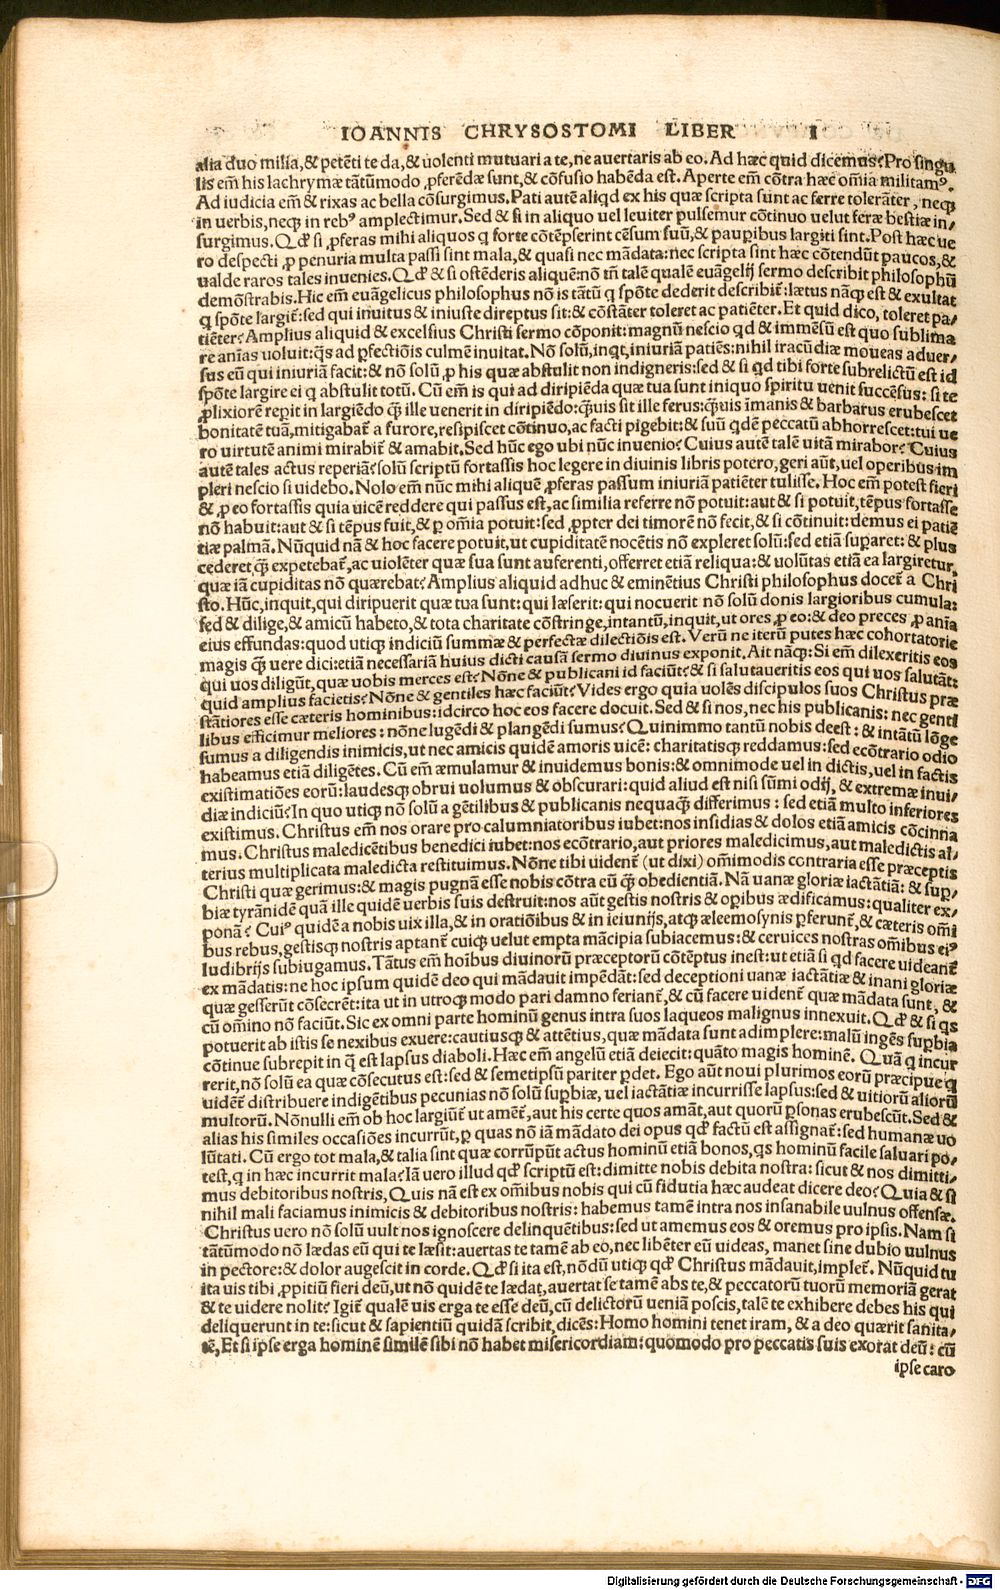 IOANNIS CHRYSOSTOMI LIBER I
alia duo milia,& petēti te da,& uolenti mutuari a te,ne auertaris ab eo.Ad hæc quid dicemus?Pro singu
lis em̄ his lachrymæ tātūmodo ꝓferēdæ sunt,& cōfusio habēda est.Aperte em̄ cōtra hæc om̄ia militamꝰ.
Ad iudicia em̄ & rixas ac bella cōsurgimus.Pati autē aliqd ex his quæ scripta sunt ac ferre tolerāter, neqꝫ
in uerbis,neqꝫ in rebꝰ amplectimur.Sed & si in aliquo uel leuiter pulsemur cōtinuo uelut feræ bestiæ in/
surgimus.Qd̄ si ꝓferas mihi aliquos q forte cōtēpserint cēsum suū,& pauꝑibus largiti sint.Post hæc ue
ro despecti ꝓ penuria multa passi sint mala,& quasi nec mādata:nec scripta sint hæc cōtendūt paucos,&
ualde raros tales inuenies.Qd̄ & si ostēderis aliquē:nō tn̄ talē qualē euāgelij sermo describit philosophū
demōstrabis.Hic em̄ euāgelicus philosophus nō is tātū q spōte dederit describit̄:lætus nāqꝫ est & exultat
q spōte largit̄:sed qui inuitus & iniuste direptus sit:& cōstāter toleret ac patiēter.Et quid dico, toleret pa/
tiēter?Amplius aliquid & excelsius Christi sermo cōponit:magnū nescio qd & immēsū est quo sublima
re anīas uoluit:q̄s ad ꝑfectiōis culmē inuitat.Nō solū,inqt,iniuriā patiēs:nihil iracūdiæ moueas aduer/
sus eū qui iniuriā facit:& nō solū ꝓ his quæ abstulit non indigneris:sed & si qd tibi forte subrelictū est id
spōte largire ei q abstulit totū. Cū em̄ is qui ad diripiēda quæ tua sunt iniquo spiritu uenit succēsus: si te
ꝓlixiorē repit in largiēdo q̄ꝫ ille uenerit in diripiēdo:q̄ꝫuis sit ille ferus:q̄ꝫuis īmanis & barbarus erubescet
bonitatē tuā,mitigabat̄ a furore,resipiscet cōtinuo,ac facti pigebit:& suū qdē peccatū abhorrescet:tui ue
ro uirtutē animi mirabit̄ & amabit.Sed hūc ego ubi nūc inuenio?Cuius autē talē uitā mirabor?Cuius
autē tales actus reperiā?solū scriptū fortassis hoc legere in diuinis libris potero,geri aūt,uel operibus im
pleri nescio si uidebo.Nolo em̄ nūc mihi aliquē ꝓferas passum iniuriā patiēter tulisse.Hoc em̄ potest fieri
& ꝓ eo fortassis quia uicē reddere qui passus est,ac similia referre nō potuit:aut & si potuit,tēpus fortasse
nō habuit:aut & si tēpus fuit,& ꝑ om̄ia potuit:sed ꝓpter dei timorē nō fecit,& si cōtinuit:demus ei patiē
tiæ palmā.Nūquid nā & hoc facere potuit,ut cupiditatē nocētis nō expleret solū:sed etiā suꝑaret:& plus
cederet,q̄ꝫ expetebat̄,ac uiolēter quæ sua sunt auferenti,offerret etiā reliqua:& uolūtas etiā ea largiretur,
quæ iā cupiditas nō quærebat?Amplius aliquid adhuc & eminētius Christi philosophus docet̄ a Chri
sto.Hūc,inquit,qui diripuerit quæ tua sunt:qui læserit:qui nocuerit nō solū donis largioribus cumula:
sed & dilige,& amicū habeto,& tota charitate cōstringe,intantū,inquit,ut ores ꝓ eo:& deo preces ꝓ anīa
eius effundas:quod utiqꝫ indiciū summæ & perfectæ dilectiōis est.Verū ne iterū putes hæc cohortatorie
magis q̄ꝫ uere dici:etiā necessariā huius dicti causā sermo diuinus exponit.Ait nāqꝫ:Si em̄ dilexeritis eos
qui uos diligūt,quæ uobis merces est?Nōne & publicani id faciūt?& si salutaueritis eos qui uos salutāt:
quid amplius facietis?Nōne & gentiles hæc faciūt?Vides ergo quia uolēs discipulos suos Christus præ
stātiores esse cæteris hominibus:idcirco hoc eos facere docuit.Sed & si nos,nec his publicanis: nec genti
libus efficimur meliores:nōne lugēdi & plangēdi sumus?Quinimmo tantū nobis deest:& intātū lōge
sumus a diligendis inimicis,ut nec amicis quidē amoris uicē: charitatisqꝫ reddamus:sed ecōtrario odio
habeamus etiā diligētes. Cū em̄ æmulamur & inuidemus bonis:& omnimode uel in dictis,uel in factis
existimatiōes eorū:laudesqꝫ obrui uolumus & obscurari:quid aliud est nisi sūmi odij, & extremæ inui/
diæ indiciū?In quo utiqꝫ nō solū a gētilibus & publicanis nequaqꝫ̄ differimus : sed etiā multo inferiores
existimus. Christus em̄ nos orare pro calumniatoribus iubet:nos insidias & dolos etiā amicis cōcinna
mus.Christus maledicētibus benedici iubet:nos ecōtrario,aut priores maledicimus,aut maledictis al/
terius multiplicata maledicta restituimus.Nōne tibi uident̄ (ut dixi) om̄imodis contraria esse præceptis
Christi quæ gerimus:& magis pugnā esse nobis cōtra eū q̄ꝫ obedientiā. Nā uanæ gloriæ iactātiā: & suꝑ/
biæ tyrānidē quā ille quidē uerbis suis destruit:nos aūt gestis nostris & oꝑibus ædificamus:qualiter ex/
ponā? Cuiꝰ quidē a nobis uix illa,& in oratiōibus & in ieiunijs,atqꝫ æleemosynis ꝑferunt̄,& cæteris om̄i
bus rebus,gestisqꝫ nostris aptant̄ cuiqꝫ uelut empta mācipia subiacemus:& ceruices nostras om̄ibus eiꝰ
ludibrijs subiugamus.Tātus em̄ hoībus diuinorū præceptorū cōtēptus inest:ut etiā si qd facere uideant̄
ex mādatis:ne hoc ipsum quidē deo qui mādauit impēdāt:sed deceptioni uanæ iactātiæ & inani gloriæ
quæ gesserūt cōsecrēt:ita ut in utroqꝫ modo pari damno feriant̄,& cū facere uident̄ quæ mādata sunt, &
cū om̄ino nō faciūt.Sic ex omni parte hominū genus intra suos laqueos malignus innexuit.Qd̄ & si qs
potuerit ab istis se nexibus exuere:cautiusqꝫ & attētius,quæ mādata sunt adimplere:malū ingēs suꝑbia
cōtinue subrepit in q̄ est lapsus diaboli.Hæc em̄ angelū etiā deiecit:quāto magis hominē. Quā q incur
rerit,nō solū ea quæ cōsecutus est:sed & semetipsū pariter ꝑdet. Ego aūt noui plurimos eorū præcipue q
uidēt̄ distribuere indigētibus pecunias nō solū suꝑbiæ, uel iactātiæ incurrisse lapsus:sed & uitiorū aliorū
multorū. Nōnulli em̄ ob hoc largiūt̄ ut amēt̄,aut his certe quos amāt,aut quorū ꝑsonas erubescūt.Sed &
alias his similes occasiōes incurrūt,ꝑ quas nō iā mādato dei opus qd̄ factū est assignat̄:sed humanæ uo
lūtati. Cū ergo tot mala,& talia sint quæ corrūpūt actus hominū etiā bonos,qs hominū facile saluari po/
test,q in hæc incurrit mala?Iā uero illud qd̄ scriptū est:dimitte nobis debita nostra: sicut & nos dimitti/
mus debitoribus nostris,Quis nā est ex om̄ibus nobis qui cū fidutia hæc audeat dicere deo?Quia & si
nihil mali faciamus inimicis & debitoribus nostris: habemus tamē intra nos insanabile uulnus offensæ.
Christus uero nō solū uult nos ignoscere delinquētibus:sed ut amemus eos & oremus pro ipsis.Nam si
tātūmodo nō lædas eū qui te læsit:auertas te tamē ab eo,nec libēter eū uideas, manet sine dubio uulnus
in pectore:& dolor augescit in corde.Qd̄ si ita est,nōdū utiqꝫ qd̄ Christus mādauit,implet̄. Nūquid tu
ita uis tibi ꝓpitiū fieri deū,ut nō quidē te lædat,auertat se tamē abs te,& peccatorū tuorū memoriā gerat
& te uidere nolit? Igit̄ qualē uis erga te esse deū,cū delictorū ueniā poscis,talē te exhibere debes his qui
deliquerunt in te:sicut & sapientiū quidā scribit,dicēs:Homo homini tenet iram, & a deo quærit sanita/
tē,Et si ipse erga hominē similē sibi nō habet misericordiam:quomodo pro peccatis suis exorat deū: cū
ipse caro
Digitalisierung gefördert durch die Deutsche Forschungsgemeinschaft - DFG